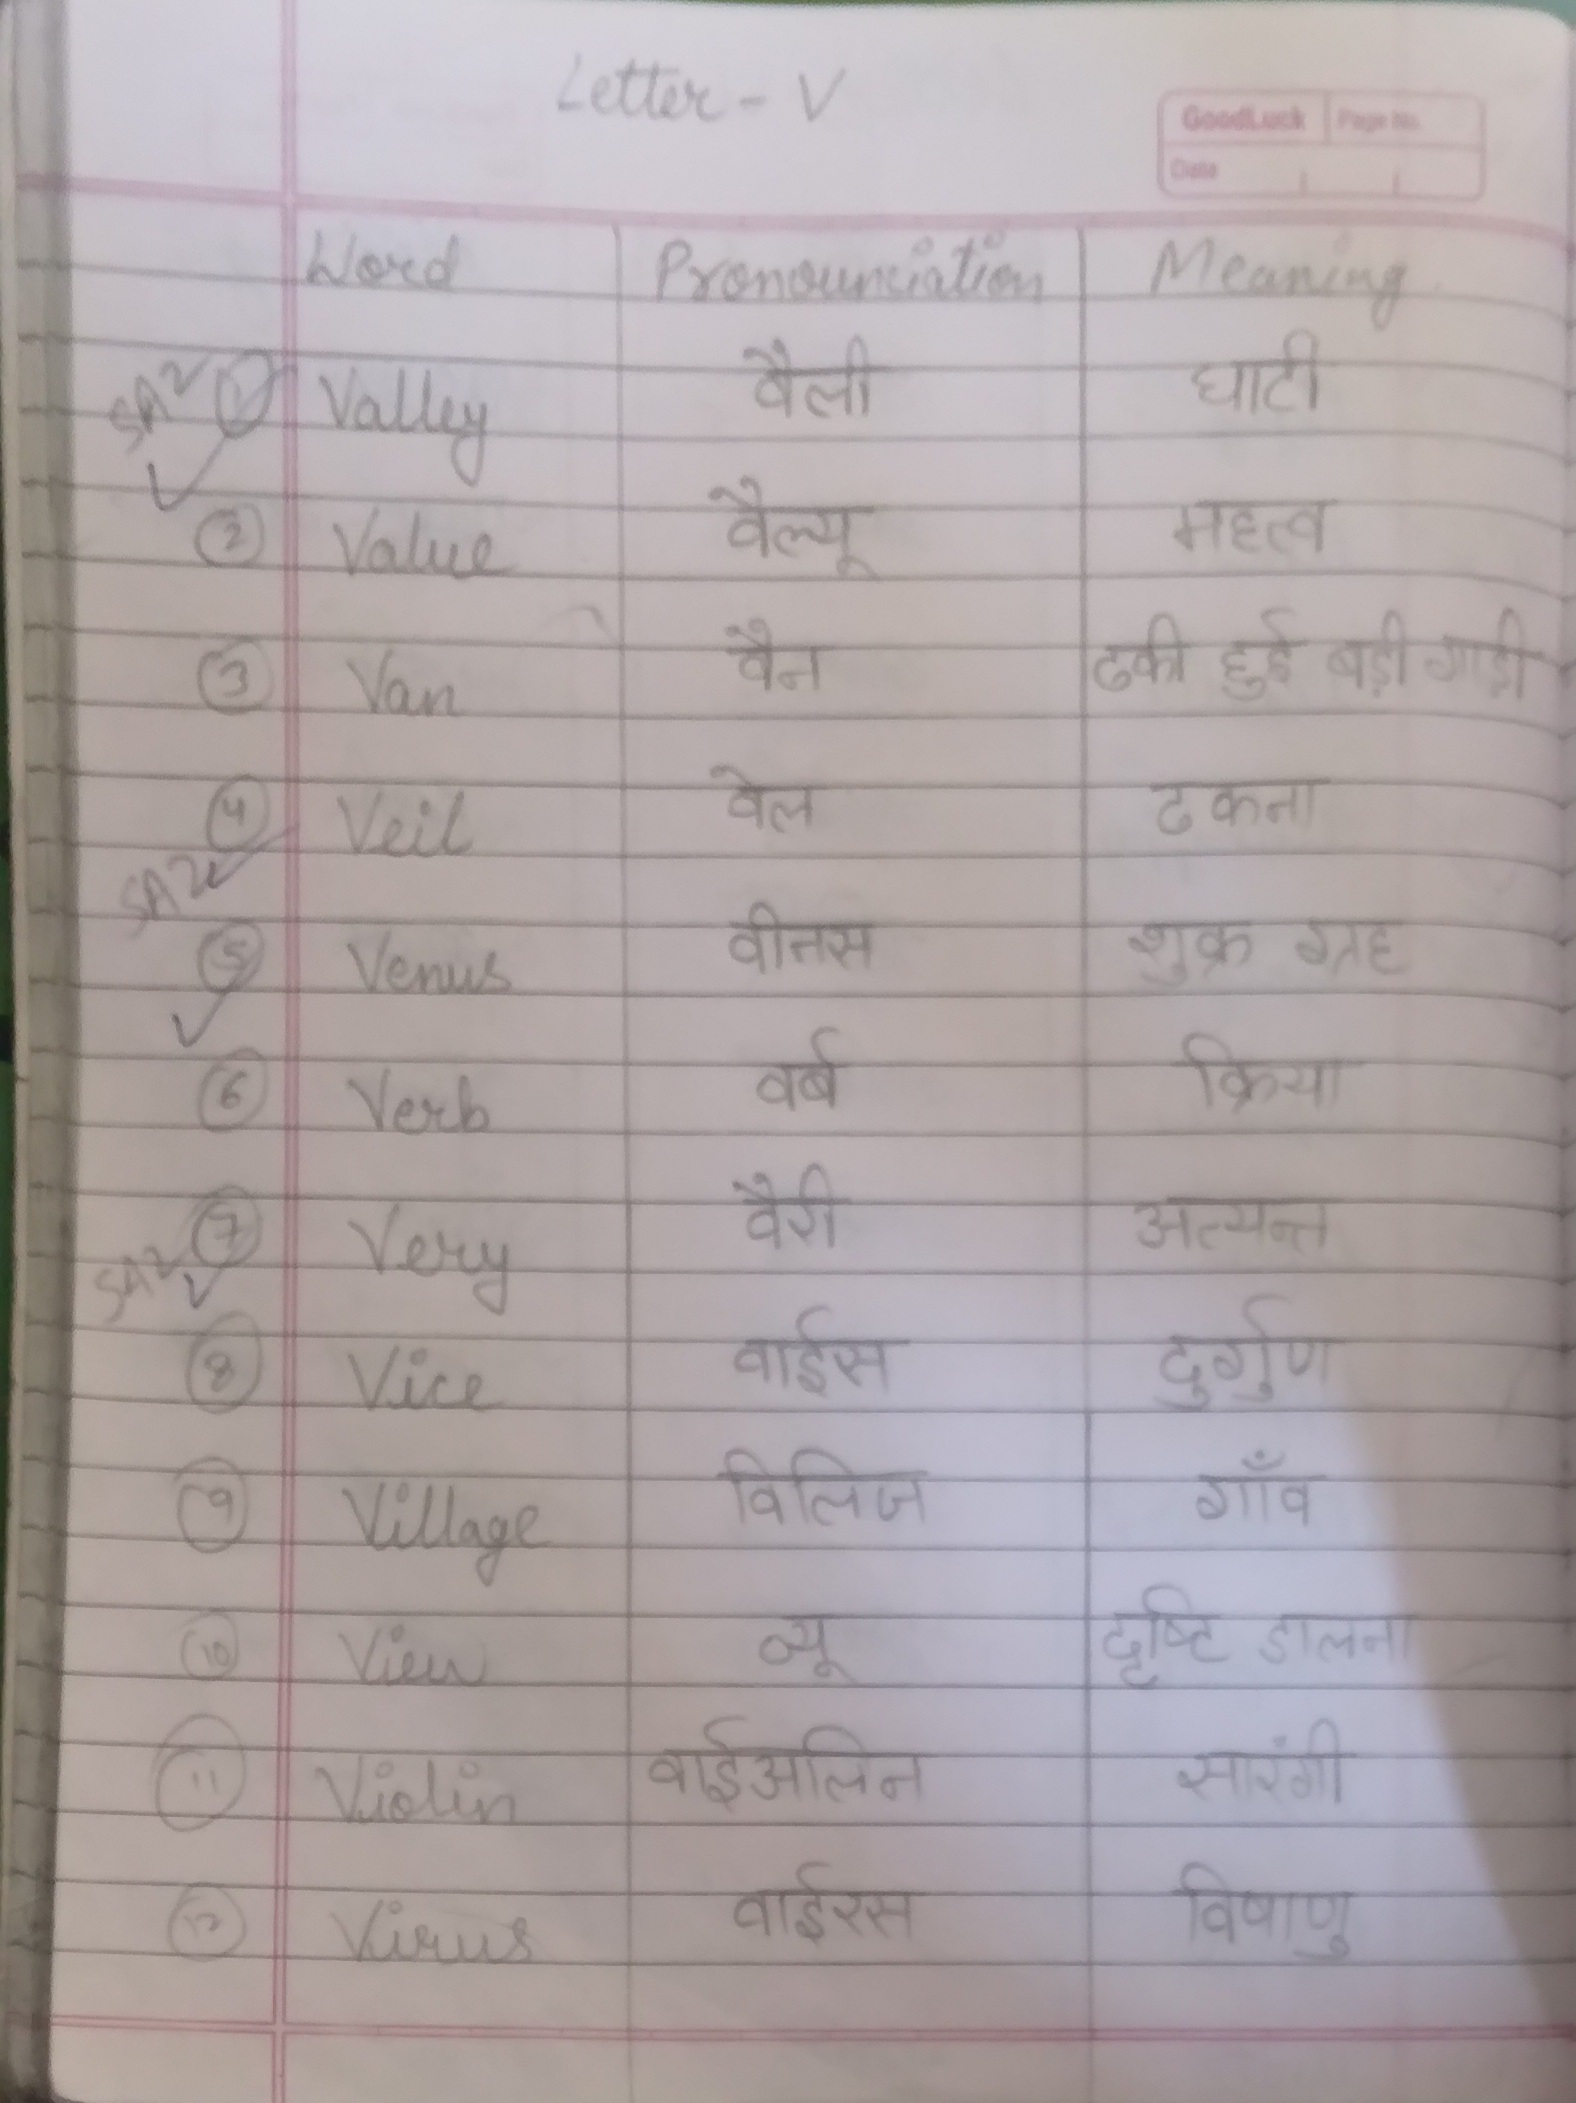 Letter - V
GoodLuck Page No.
Date
Word Pronounciation Meaning
SA2 ① Valley वैली घाटी
② Value वैल्यू महत्व
③ Van वैन ढकी हुई बड़ी गाड़ी
④ Veil वेल ढकना
SA2
⑤ Venus वीनस शुक्र ग्रह
⑥ Verb वर्ब क्रिया
SA2 ⑦ Very वैरी अत्यन्त
⑧ Vice वाईस दुर्गुण
⑨ Village विलिज गाँव
⑩ View व्यू दृष्टि डालना
⑪ Violin वाईअलिन सारंगी
⑫ Virus वाईरस विषाणु